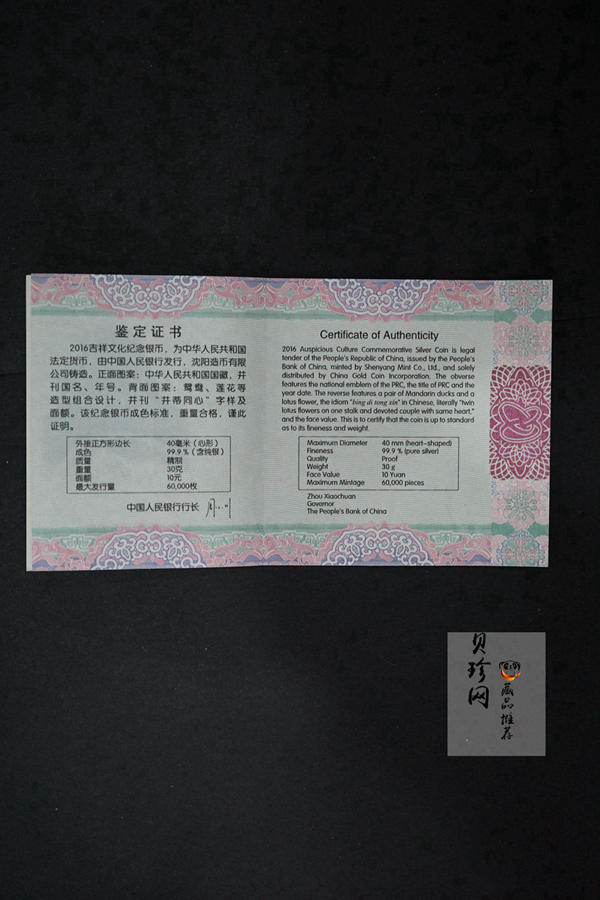 鉴定证书
2016吉祥文化纪念银币，为中华人民共和国
法定货币，由中国人民银行发行，沈阳造币有限
公司铸造。正面图案：中华人民共和国国徽，并
刊国名、年号。背面图案：鸳鸯、莲花等
造型组合设计，并刊“并蒂同心”字样及
面额。该纪念银币成色标准，重量合格，谨此
证明。
外接正方形边长 40毫米（心形）
成色 99.9％（含纯银）
质量 精制
重量 30克
面额 10元
最大发行量 60,000枚
中国人民银行行长
Certificate of Authenticity
2016 Auspicious Culture Commemorative Silver Coin is legal
tender of the People's Republic of China, issued by the People's
Bank of China, minted by Shenyang Mint Co., Ltd., and solely
distributed by China Gold Coin Incorporation. The obverse
features the national emblem of the PRC, the title of PRC and the
year date. The reverse features a pair of Mandarin ducks and a
lotus flower, the idiom "bing di tong xin" in Chinese, literally "twin
lotus flowers on one stalk and devoted couple with same heart,"
and the face value. This is to certify that the coin is up to standard
as to its fineness and weight.
Maximum Diameter 40 mm (heart-shaped)
Fineness 99.9 % (pure silver)
Quality Proof
Weight 30 g
Face Value 10 Yuan
Maximum Mintage 60,000 pieces
Zhou Xiaochuan
Governor
The People's Bank of China
贝珍网
藏品推荐